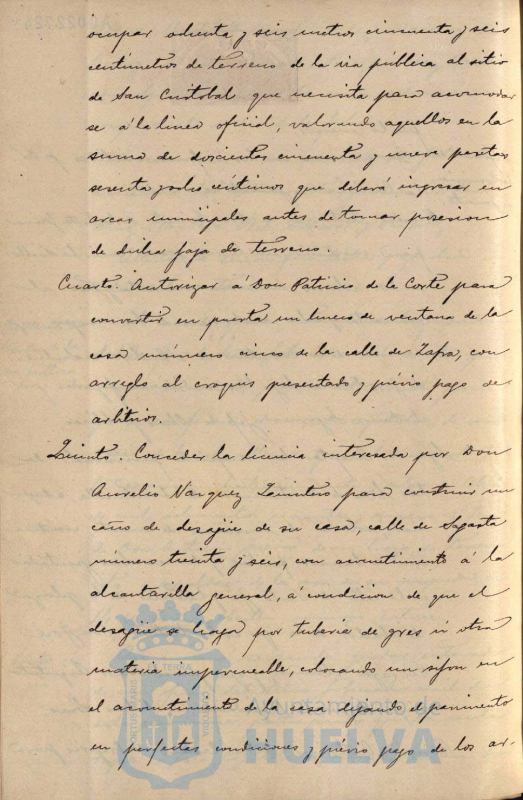 ocupar ochenta y seis metros cincuenta y seis
centímetros de terreno de la via pública al sitio
de San Cristobal que necesita para acomodar
se á la linea oficial, valorando aquellos en la
suma de doscientas cincuenta y nueve pesetas
sesenta y ocho céntimos que deberá ingresar en
arcas municipales antes de tomar posesion
de dicha faja de terreno.
Cuarto. Autorizar á Don Patricio de la Corte para
convertir en puerta un hueco de ventana de la
casa número cinco de la calle de Zafra, con
arreglo al croquis presentado y prévio pago de
arbitrios.
Quinto. Conceder la licencia interesada por Don
Aurelio Vazquez Quintero para construir un
caño de desagüe de su casa, calle de Sagasta
número treinta y seis, con acometimiento á la
alcantarilla general, á condicion de que el
desagüe se haga por tubería de gres ú otra
materia impermeable, colocando un sifon en
el acometimiento de la casa dejando el pavimento
en perfectas condiciones y prévio pago de los ar-
Ayuntamiento de
HUELVA